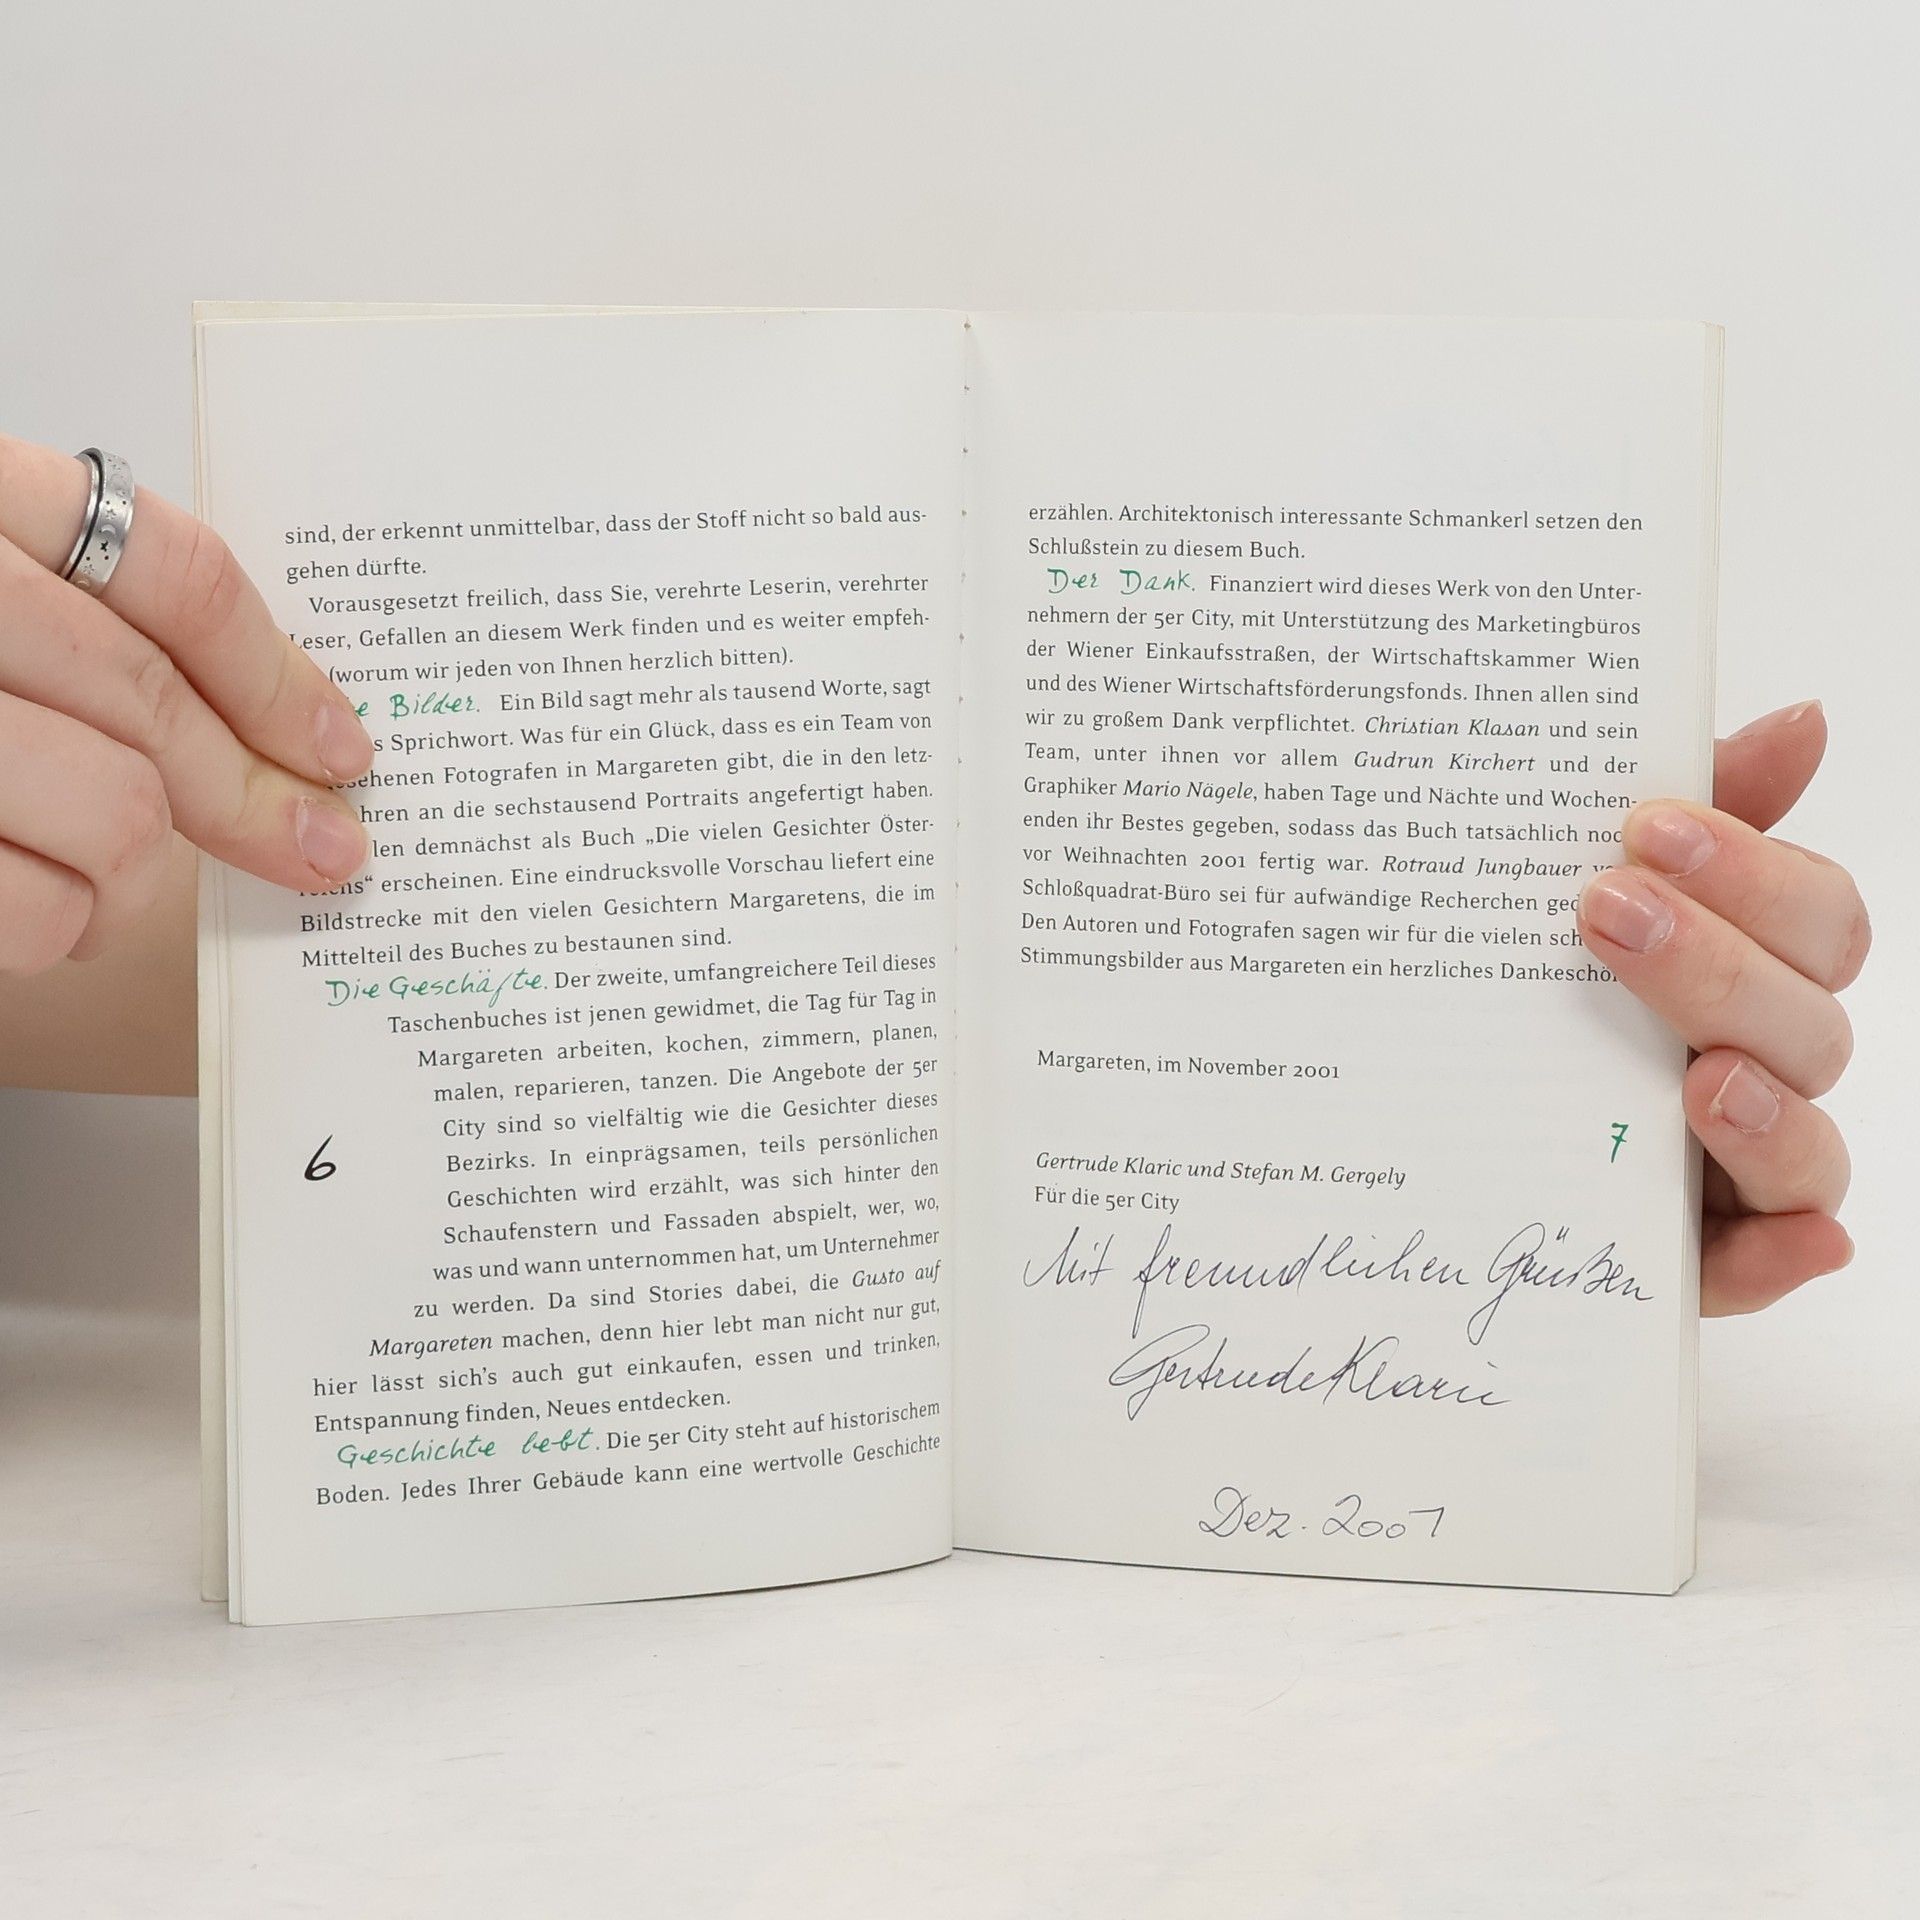 sind, der erkennt unmittelbar, dass der Stoff nicht so bald aus-
gehen dürfte.
Vorausgesetzt freilich, dass Sie, verehrte Leserin, verehrter
Leser, Gefallen an diesem Werk finden und es weiter empfeh-
(worum wir jeden von Ihnen herzlich bitten).
Bilder. Ein Bild sagt mehr als tausend Worte, sagt
Sprichwort. Was für ein Glück, dass es ein Team von
Fotografen in Margareten gibt, die in den letz-
an die sechstausend Portraits angefertigt haben.
demnächst als Buch „Die vielen Gesichter Öster-
erscheinen. Eine eindrucksvolle Vorschau liefert eine
Bildstrecke mit den vielen Gesichtern Margaretens, die im
Mittelteil des Buches zu bestaunen sind.
Die Geschäfte. Der zweite, umfangreichere Teil dieses
Taschenbuches ist jenen gewidmet, die Tag für Tag in
Margareten arbeiten, kochen, zimmern, planen,
malen, reparieren, tanzen. Die Angebote der 5er
City sind so vielfältig wie die Gesichter dieses
Bezirks. In einprägsamen, teils persönlichen
Geschichten wird erzählt, was sich hinter den
Schaufenstern und Fassaden abspielt, wer, wo,
was und wann unternommen hat, um Unternehmer
zu werden. Da sind Stories dabei, die Gusto auf
Margareten machen, denn hier lebt man nicht nur gut,
hier lässt sich's auch gut einkaufen, essen und trinken,
Entspannung finden, Neues entdecken.
Geschichte lebt. Die 5er City steht auf historischem
Boden. Jedes Ihrer Gebäude kann eine wertvolle Geschichte
6
erzählen. Architektonisch interessante Schmankerl setzen den
Schlußstein zu diesem Buch.
Der Dank. Finanziert wird dieses Werk von den Unter-
nehmern der 5er City, mit Unterstützung des Marketingbüros
der Wiener Einkaufsstraßen, der Wirtschaftskammer Wien
und des Wiener Wirtschaftsförderungsfonds. Ihnen allen sind
wir zu großem Dank verpflichtet. Christian Klasan und sein
Team, unter ihnen vor allem Gudrun Kirchert und der
Graphiker Mario Nägele, haben Tage und Nächte und Wochen-
enden ihr Bestes gegeben, sodass das Buch tatsächlich
vor Weihnachten 2001 fertig war. Rotraud Jungbauer
Schloßquadrat-Büro sei für aufwändige Recherchen
Den Autoren und Fotografen sagen wir für die vielen
Stimmungsbilder aus Margareten ein herzliches Dankeschön
Margareten, im November 2001
7
Gertrude Klaric und Stefan M. Gergely
Für die 5er City
Mit freundlichen Grüßen
Gertrude Klaric
Dez. 2001